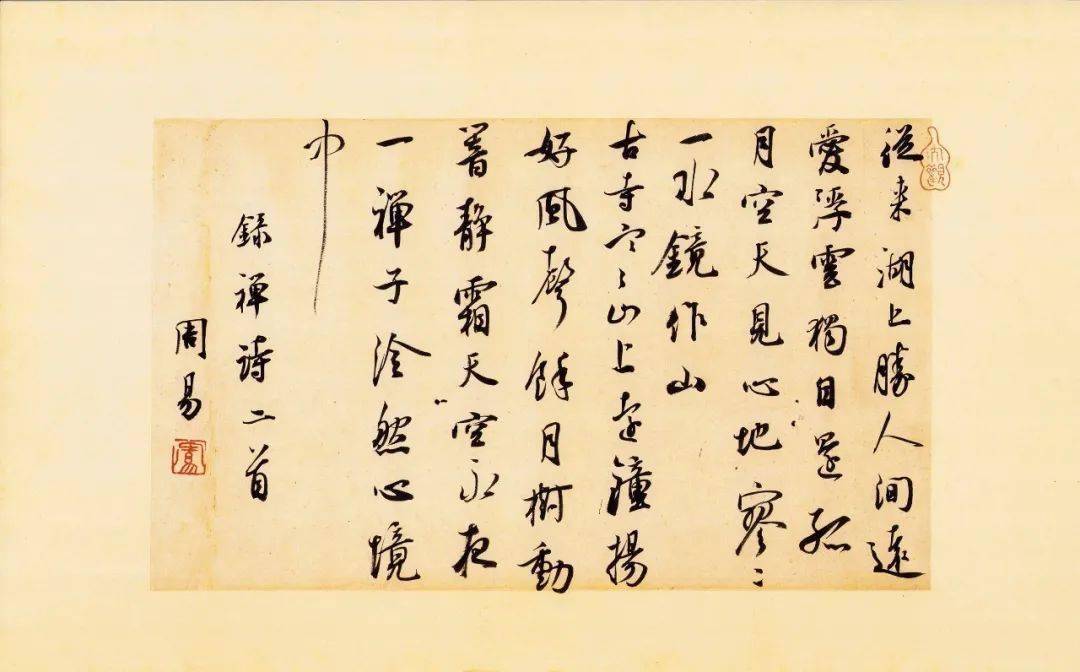 從来湖上勝人间遠
愛浮雲獨自還孤
月空天見心地寥〻
一水鏡作山
古寺寒山上遠鐘揚
好風聲餘月樹動
静霜天空永夜
一禪子泠然心境
中
録禪詩二首
周易